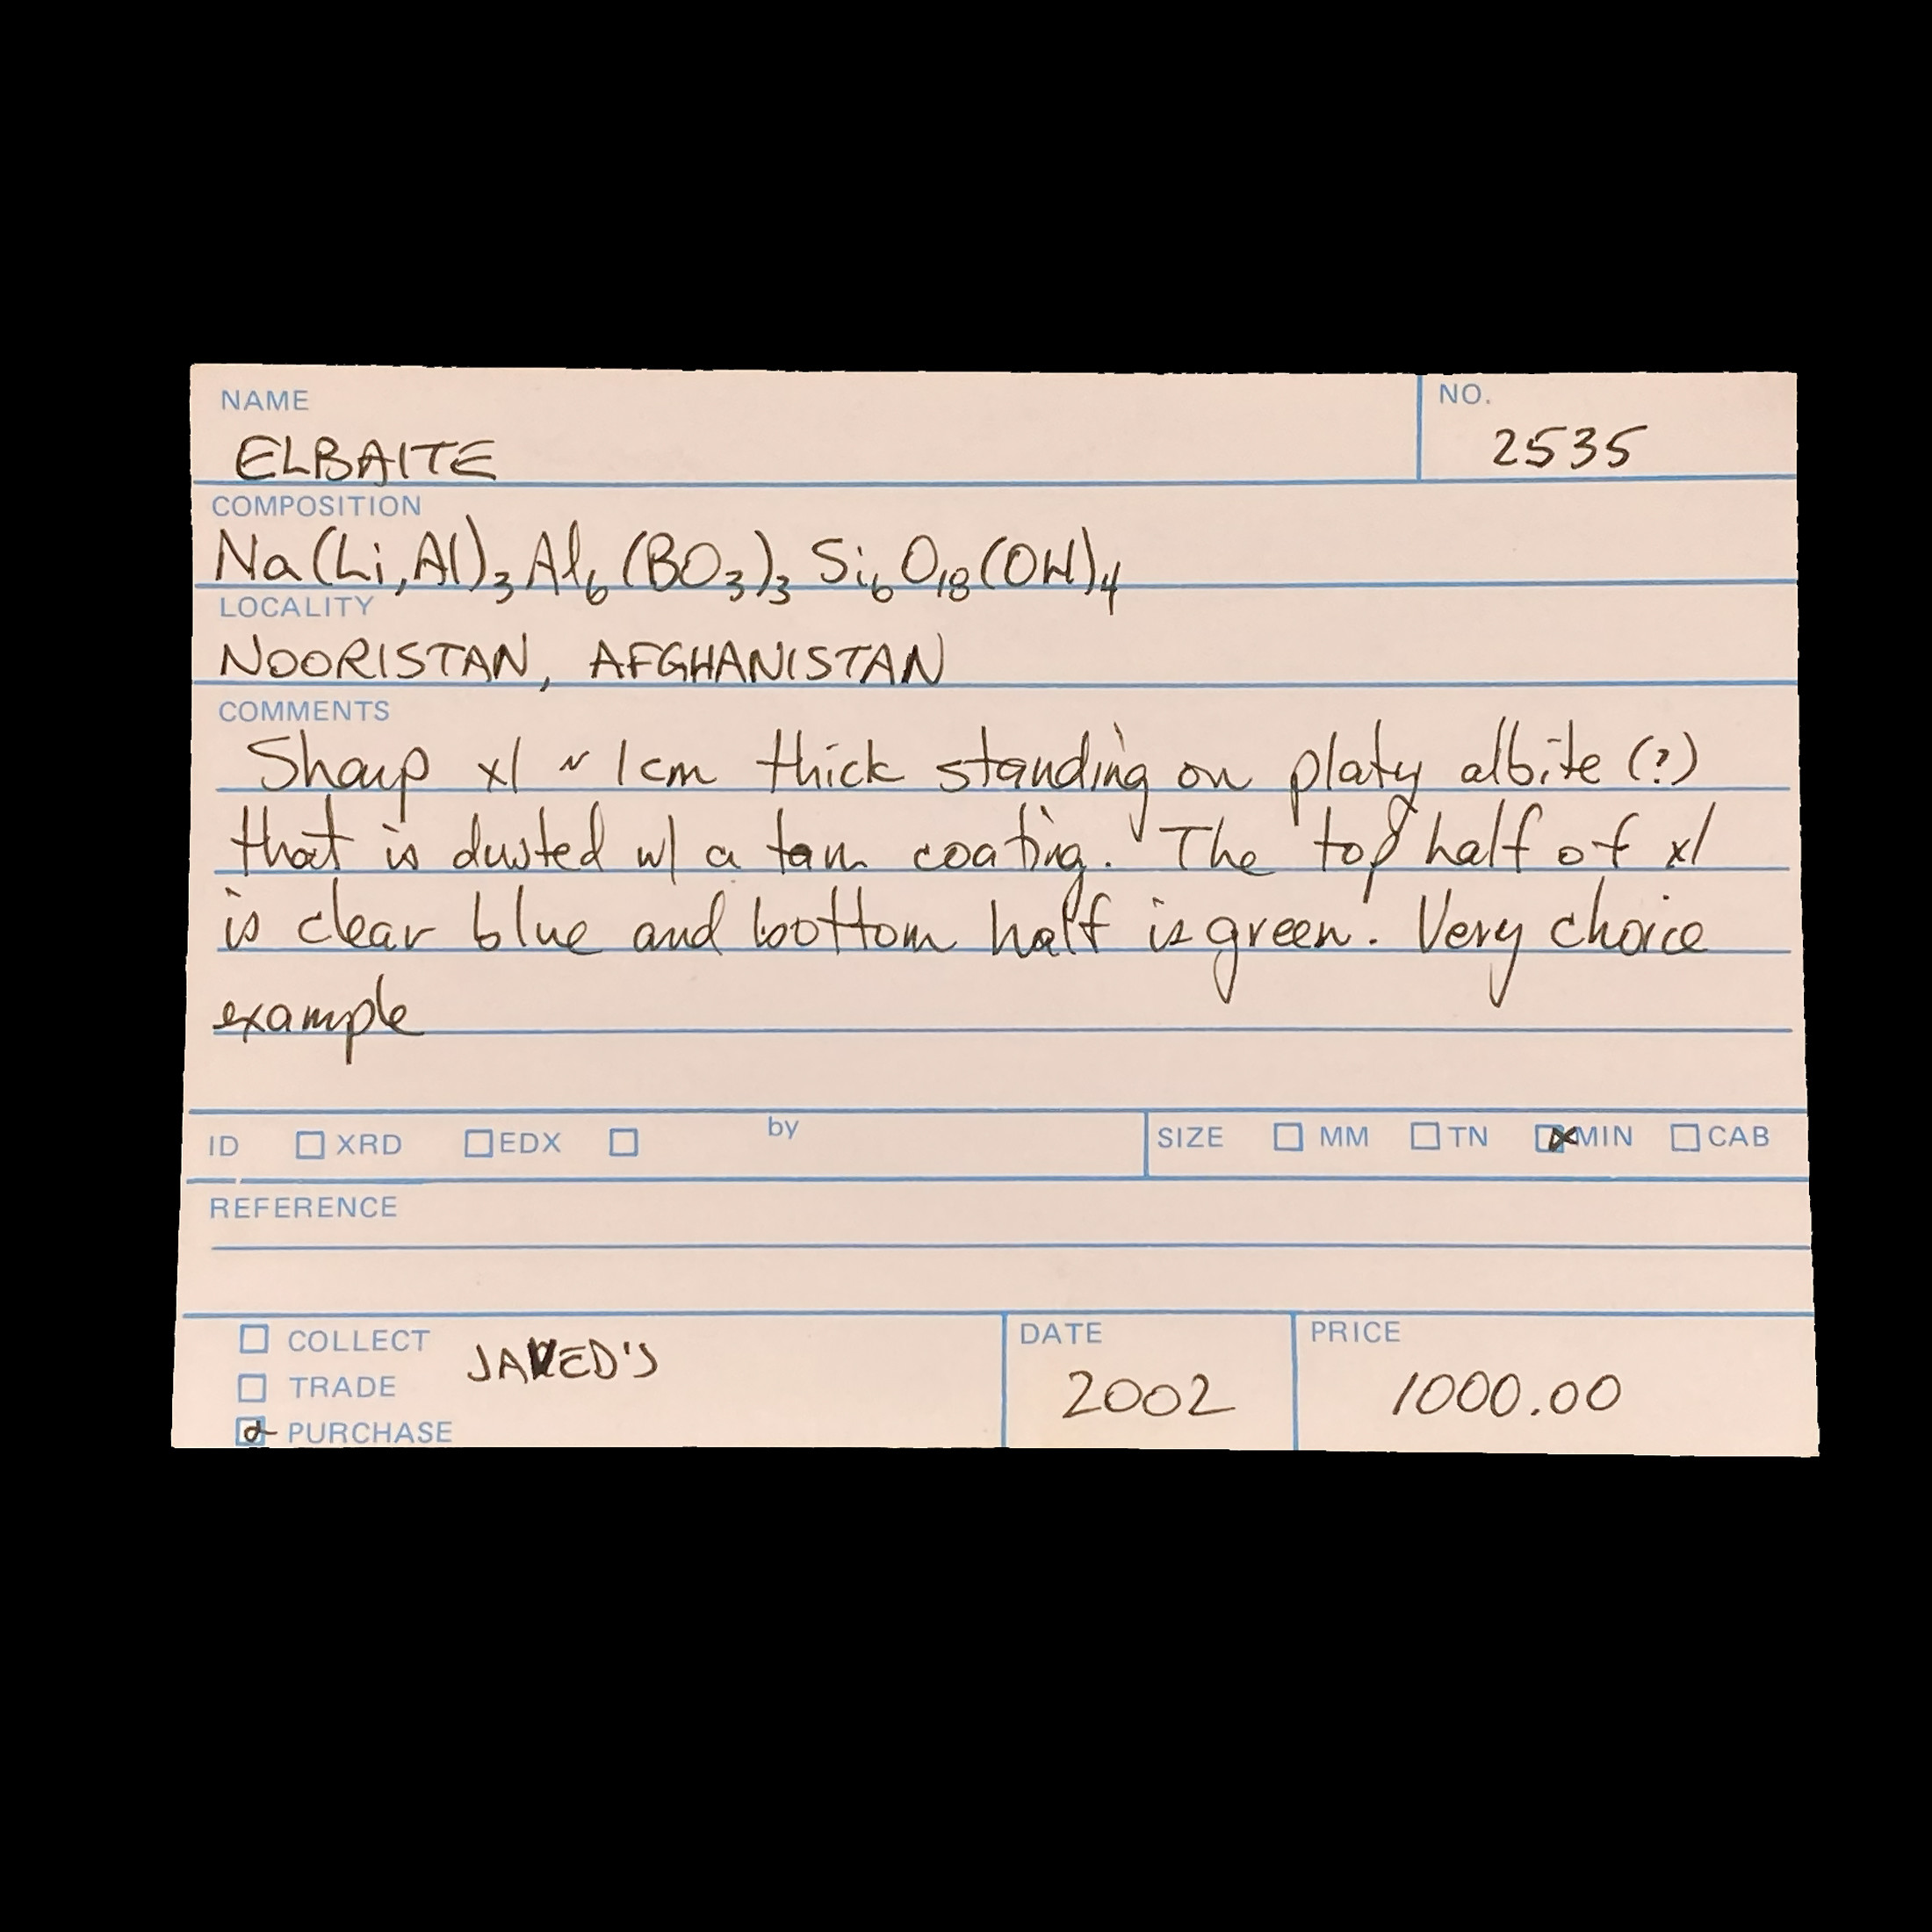 NAME NO.
ELBAITE 2535
COMPOSITION
Na(Li,Al)₃Al₆(BO₃)₃Si₆O₁₈(OH)₄
LOCALITY
NOORISTAN, AFGHANISTAN
COMMENTS
Sharp xl ~ 1cm thick standing on platy albite (?)
that is dusted w/ a tan coating. The top half of xl
is clear blue and bottom half is green. Very choice
example
ID XRD EDX by SIZE MM TN MIN CAB
REFERENCE
COLLECT DATE PRICE
TRADE JAVED'S 2002 1000.00
PURCHASE